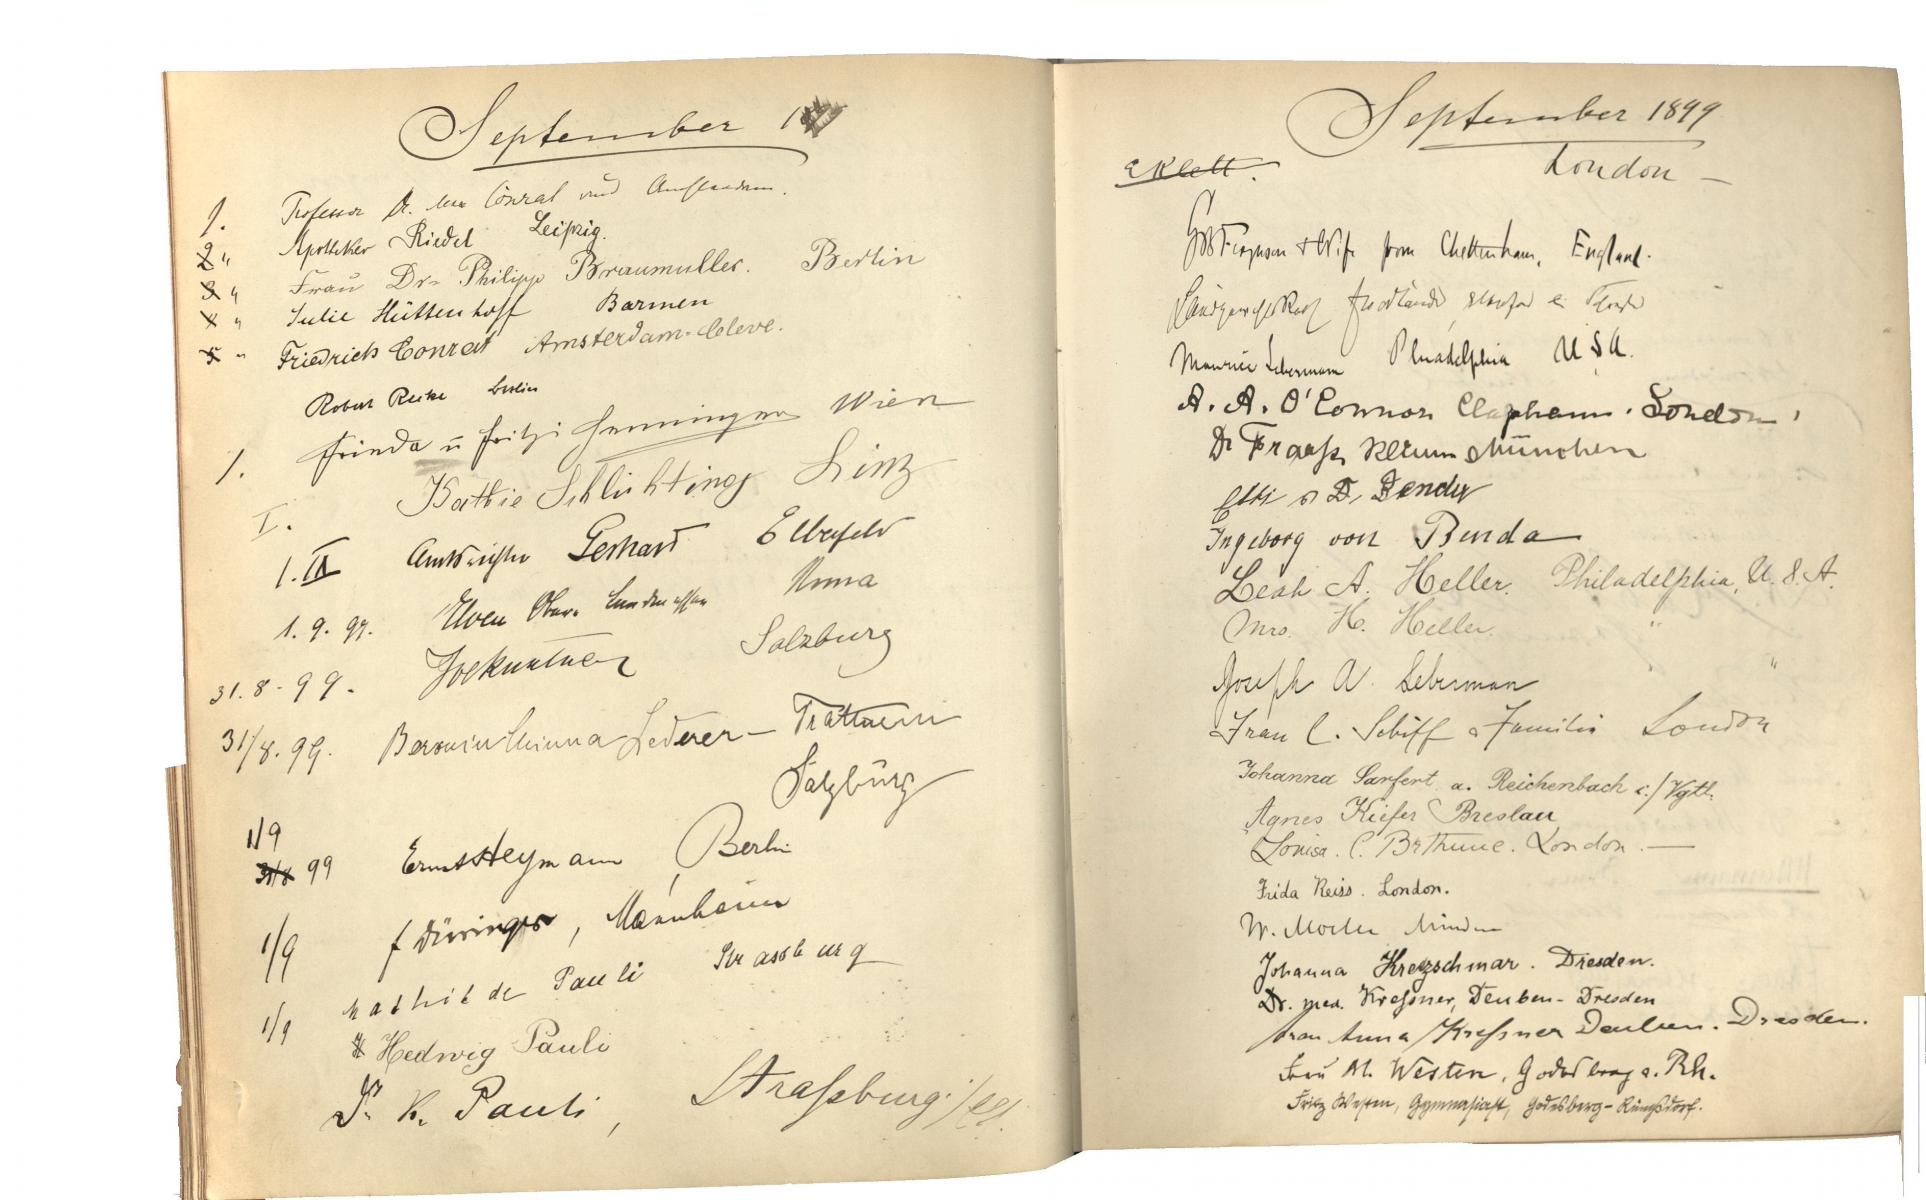 September 1
1. Professor Dr. Max Conrat und Amsterdam.
2 " Apotheker Riedel Leipzig.
3 " Frau Dr. Philipp Braumuller. Berlin
4 " Julie Hüttenhoff Barmen
5 " Friedrich Conrat Amsterdam-Cleve.
Robert Berlin
1. Frieda u Fritzi Wien
I. Kathie Schlichting Linz
1. IX Amtsrichter Gerhard Elberfeld
1. 9. 99. Unna
31. 8 - 99. Salzburg
31/8. 99. Minna Lederer - Trattnern
Salzburg
1/9
31/8 99 Ernst Heymann, Berlin
1/9 F Düringer, Mannheim
1/9 Mathilde Pauli Strassburg
Hedwig Pauli
Dr. K. Pauli, Straßburg i/Els.
September 1899
Klett. London -
Ferguson & Wife from Cheltenham, England.
Maurice Leberman Philadelphia U S A.
A. A. O'Connor Clapham. London.
Dr Fraass München
Elli Dr. Bender
Ingeborg von Benda
Leah A. Heller. Philadelphia, U. S. A.
Mrs. H. Heller. "
Joseph A. Leberman " "
Frau C. Schiff & Familie London
Johanna Sarfert a. Reichenbach i./Vgtl.
Agnes Kiefer Breslau
Louisa. C. Bethune. London. -
Frida Reiss. London.
W. Minden
Johanna Kretzschmar. Dresden.
Dr. med. Kreßner, Deuben-Dresden
Frau Anna Kreßner Deuben. Dresden.
Frau M. Westen, Godesberg a. Rh.
Fritz Westen, Gymnasiast, Godesberg-Rüngsdorf.